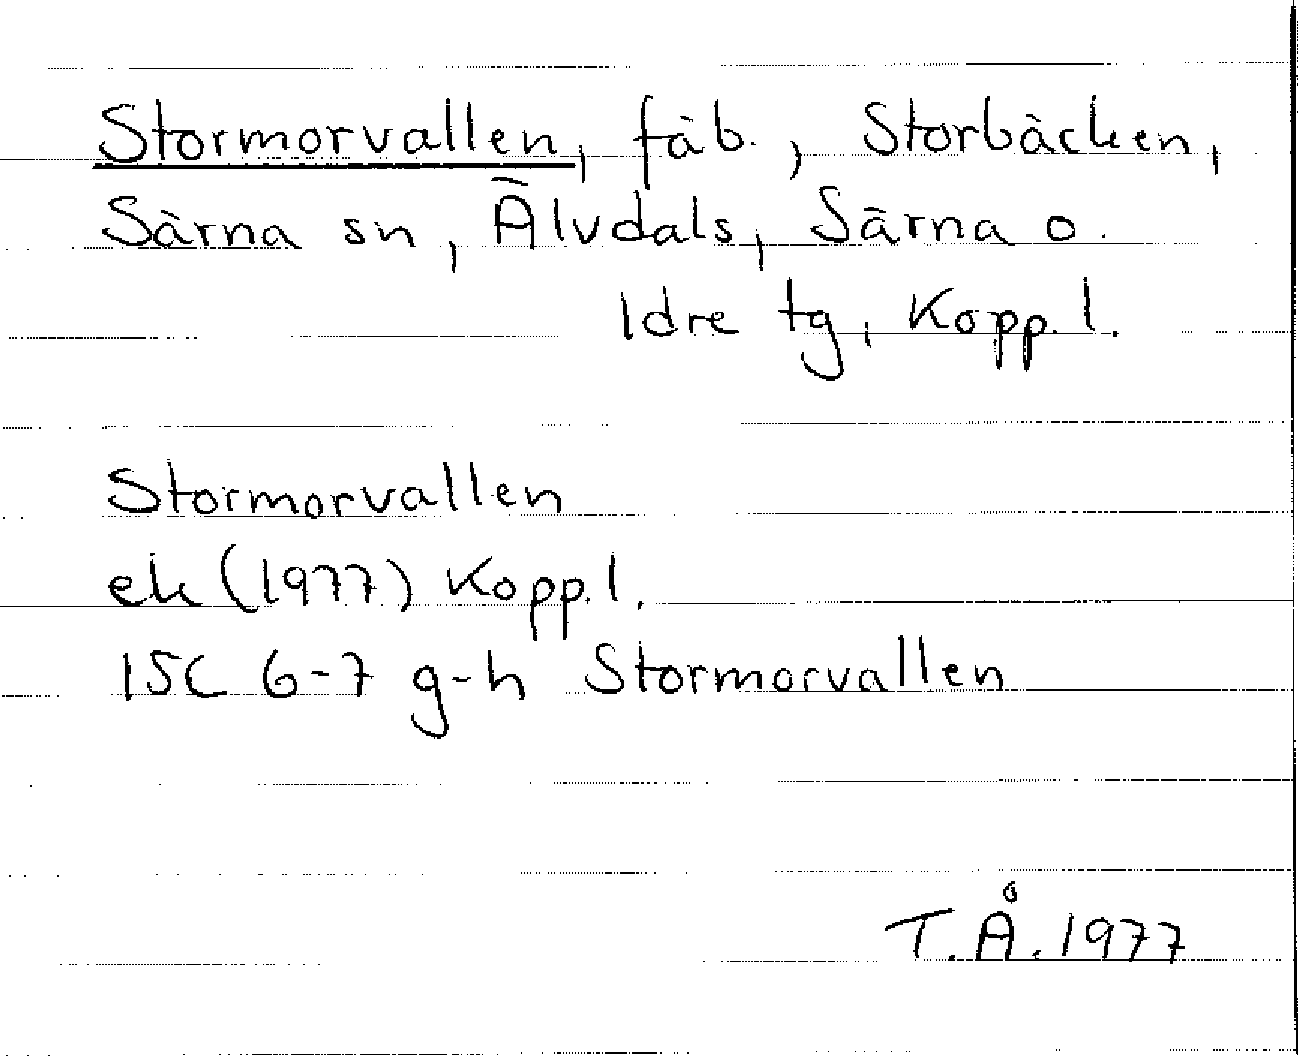 Stormorvallen, fäb., Storbäcken,
Särna sn, Älvdals, Särna o.
Idre tg, Kopp. l.
Stormorvallen
ek (1977) Kopp. l.
15C 6-7 g-h Stormorvallen
T.Å. 1977